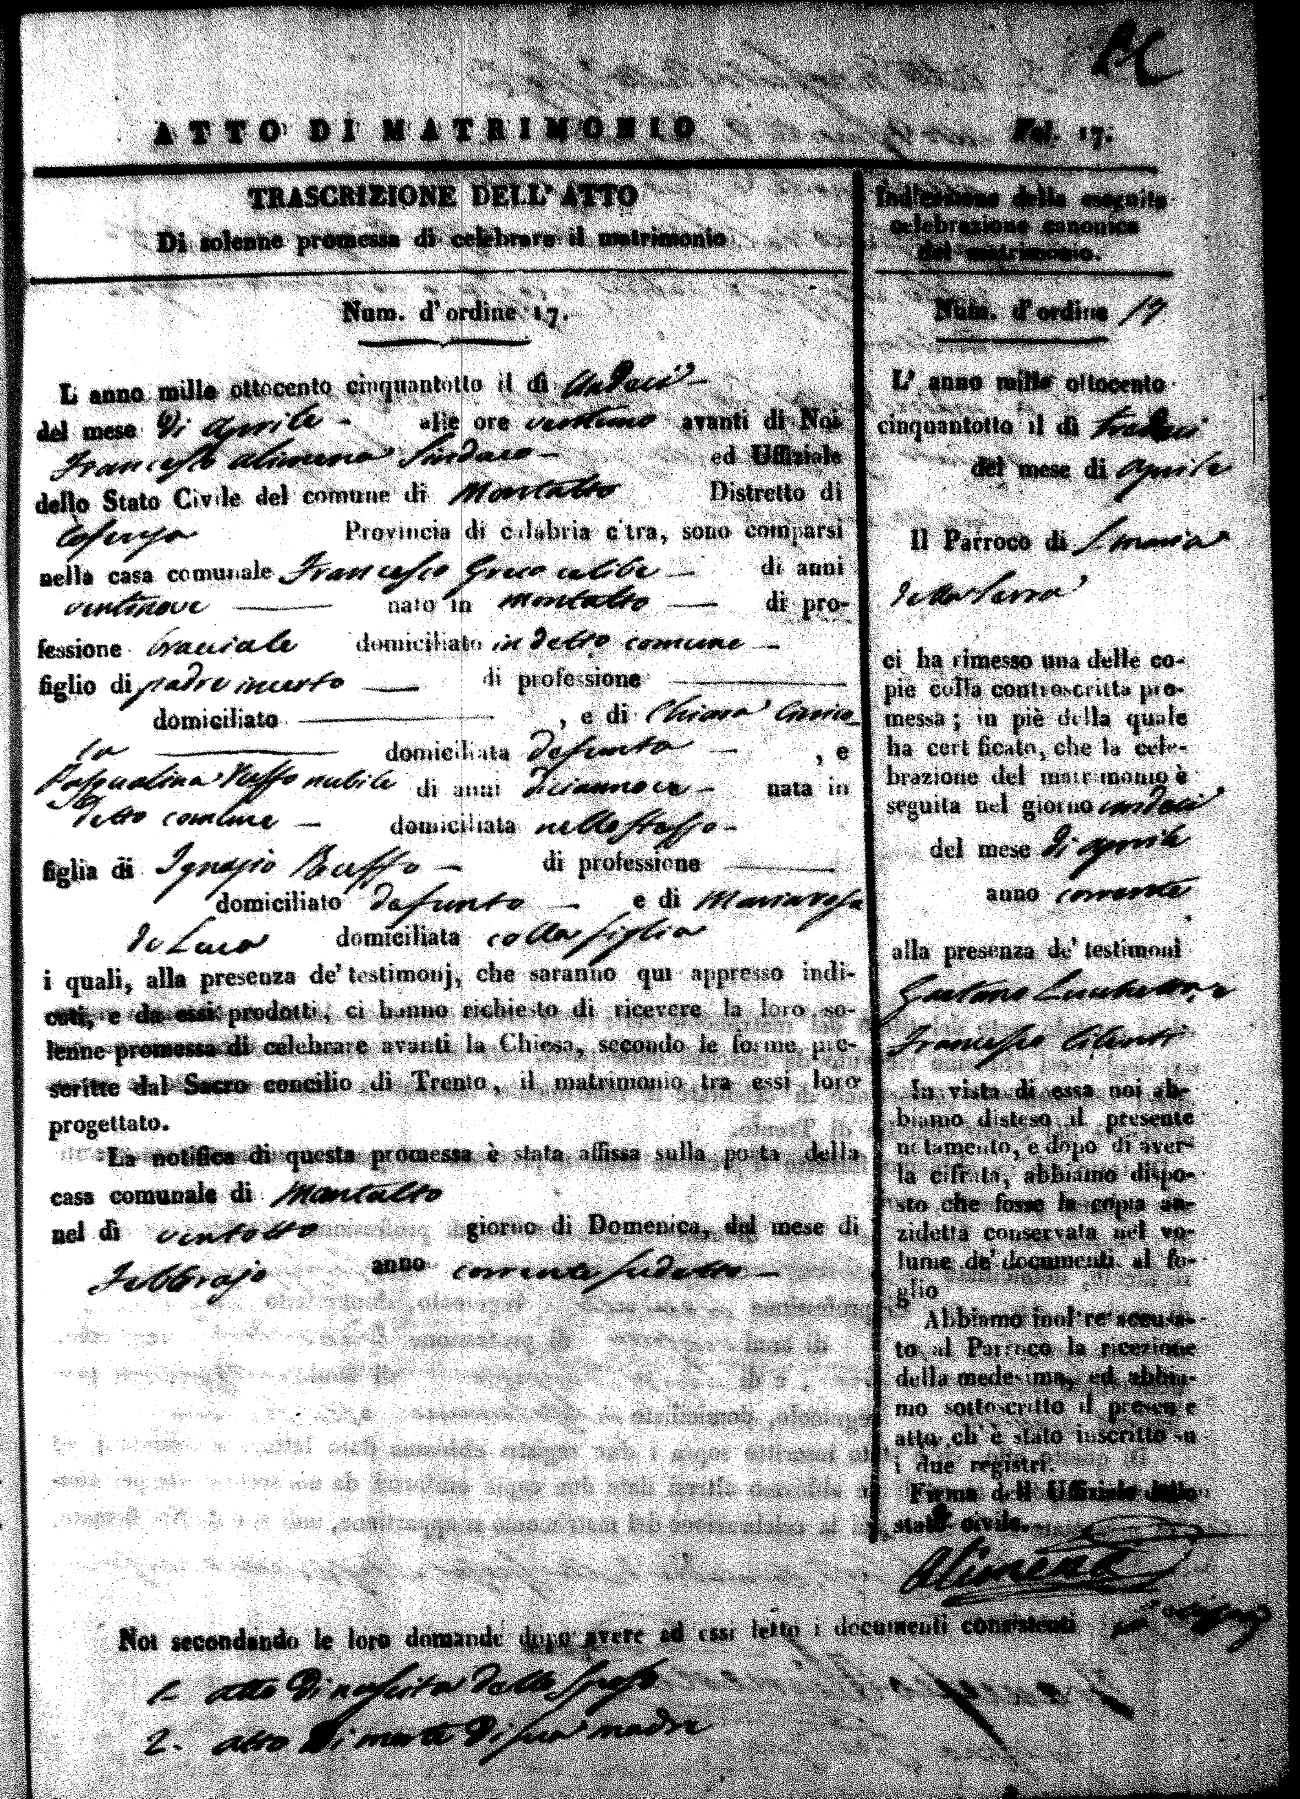 ATTO DI MATRIMONIO Fol. 17.
TRASCRIZIONE DELL' ATTO
Di solenne promessa di celebrare il matrimonio
Num. d'ordine 17.
L anno mille ottocento cinquantotto il dì undeci
del mese di aprile alle ore ventuno avanti di Noi
Francesco Alimena Sindaco ed Uffiziale
dello Stato Civile del comune di Montalto Distretto di
Cosenza Provincia di calabria citra, sono comparsi
nella casa comunale Francesco Greco celibe di anni
ventinove nato in Montalto di pro-
fessione bracciale domiciliato in detto comune
figlio di padre incerto di professione
domiciliato , e di Chiara
domiciliata defunta , e
Pasqualina Ruffo nubile di anni diciannove nata in
detto comune domiciliata nello stesso
figlia di Ignazio Ruffo di professione
domiciliato defunto e di Mariarosa
de Luca domiciliata colla figlia
i quali, alla presenza de' testimonj, che saranno qui appresso indi-
cati, e da essi prodotti, ci hanno richiesto di ricevere la loro so-
lenne promessa di celebrare avanti la Chiesa, secondo le forme pre-
scritte dal Sacro concilio di Trento, il matrimonio tra essi loro
progettato.
La notifica di questa promessa è stata affissa sulla porta della
casa comunale di Montalto
nel dì ventotto giorno di Domenica, del mese di
Febbrajo anno corrente sudetto
Noi secondando le loro domande dopo avere ad essi letto i documenti consistenti
1- atto di nascita dello sposo
2- atto di morte di sua madre
Indicazione della eseguita
celebrazione canonica
del matrimonio.
Num. d'ordine 17
L' anno mille ottocento
cinquantotto il dì tredeci
del mese di aprile
Il Parroco di S. Maria
della Serra
ci ha rimesso una delle co-
pie colla controscritta pro-
messa; in piè della quale
ha certificato, che la cele-
brazione del matrimonio è
seguita nel giorno undeci
del mese di aprile
anno corrente
alla presenza de' testimoni
Gaetano e
Francesco Cilenti
In vista di essa noi ab-
biamo disteso il presente
notamento, e dopo di aver-
la cifrata, abbiamo dispo-
sto che fosse la copia an-
zidetta conservata nel vo-
lume de' documenti al fo-
glio
Abbiamo inoltre accusa-
to al Parroco la ricezione
della medesima, ed abbia-
mo sottoscritto il presente
atto ch' è stato inscritto su
i due registri.
Firma dell Uffiziale dello
stato civile.
Alimena